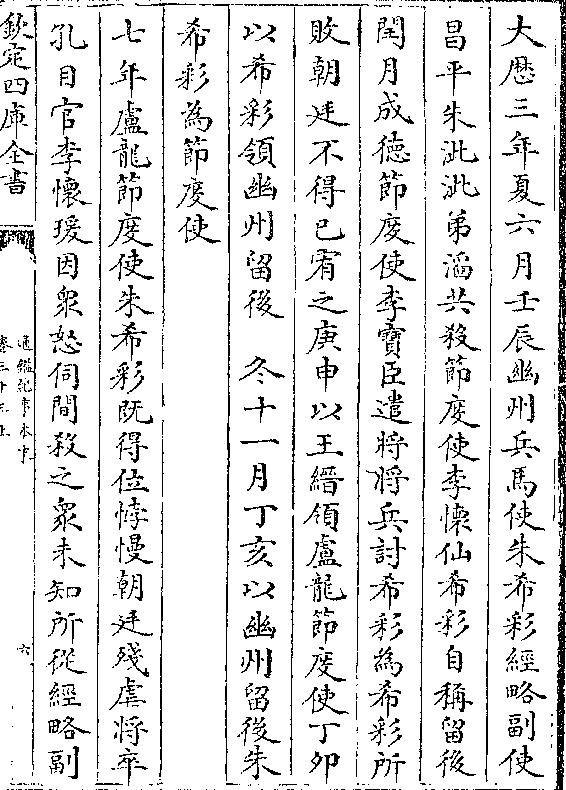 大厯三年夏六月壬辰幽州兵馬使朱希彩經略副使
昌平朱泚泚弟滔共殺節度使李懷仙希彩自稱留後
閏月成徳節度使李寶臣遣將將兵討希彩為希彩所
敗朝廷不得已宥之庚申以王縉領盧龍節度使丁卯
以希彩領幽州留後　冬十一月丁亥以幽州留後朱
希彩為節度使
七年盧龍節度使朱希彩既得位悖慢朝廷殘虐將卒
孔目官李懷瑗因衆怒伺間殺之衆未知所從經略副
欽定四庫全書
通鑑紀事本末
六